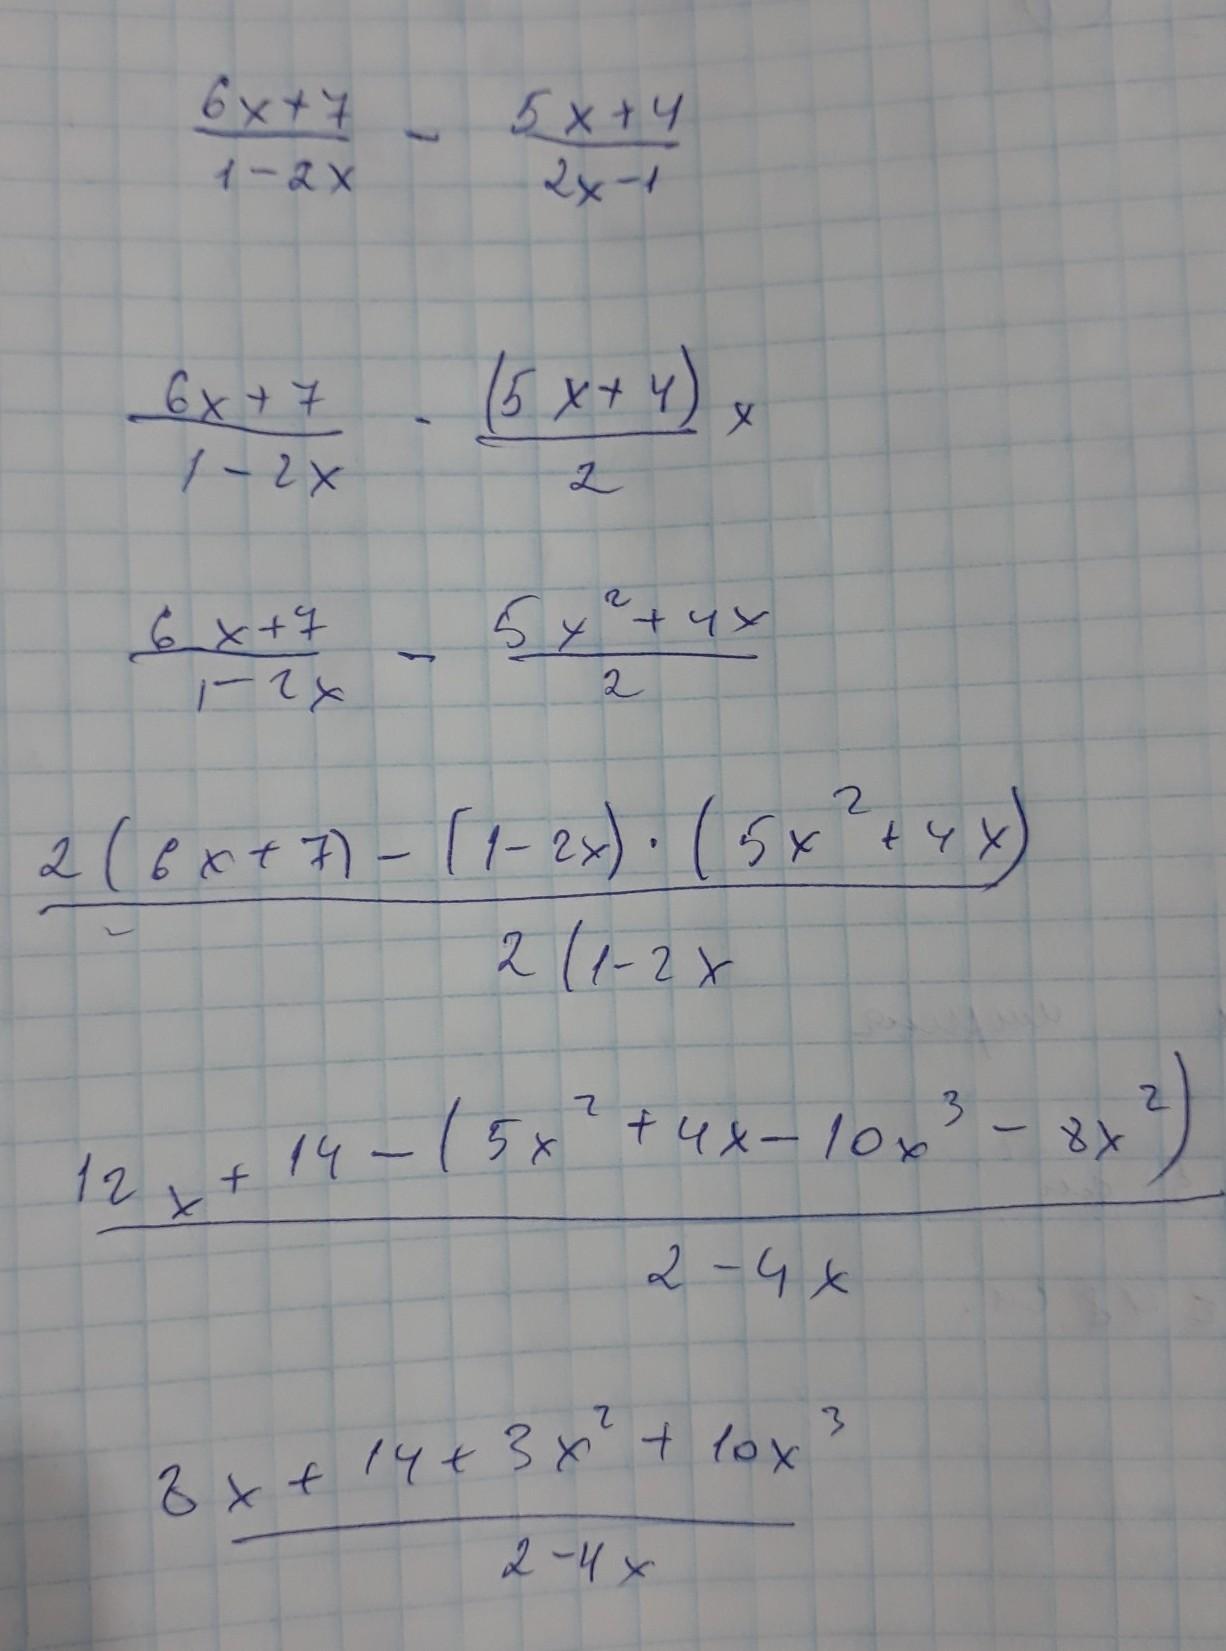 (6x+7)/(1-2x) - (5x+4)/(2x-1)
(6x+7)/(1-2x) - ((5x+4))/2 x
(6x+7)/(1-2x) - (5x²+4x)/2
2(6x+7)-(1-2x)·(5x²+4x)
2(1-2x
12x+14-(5x²+4x-10x³-8x²)
2-4x
8x+14+3x²+10x³
2-4x